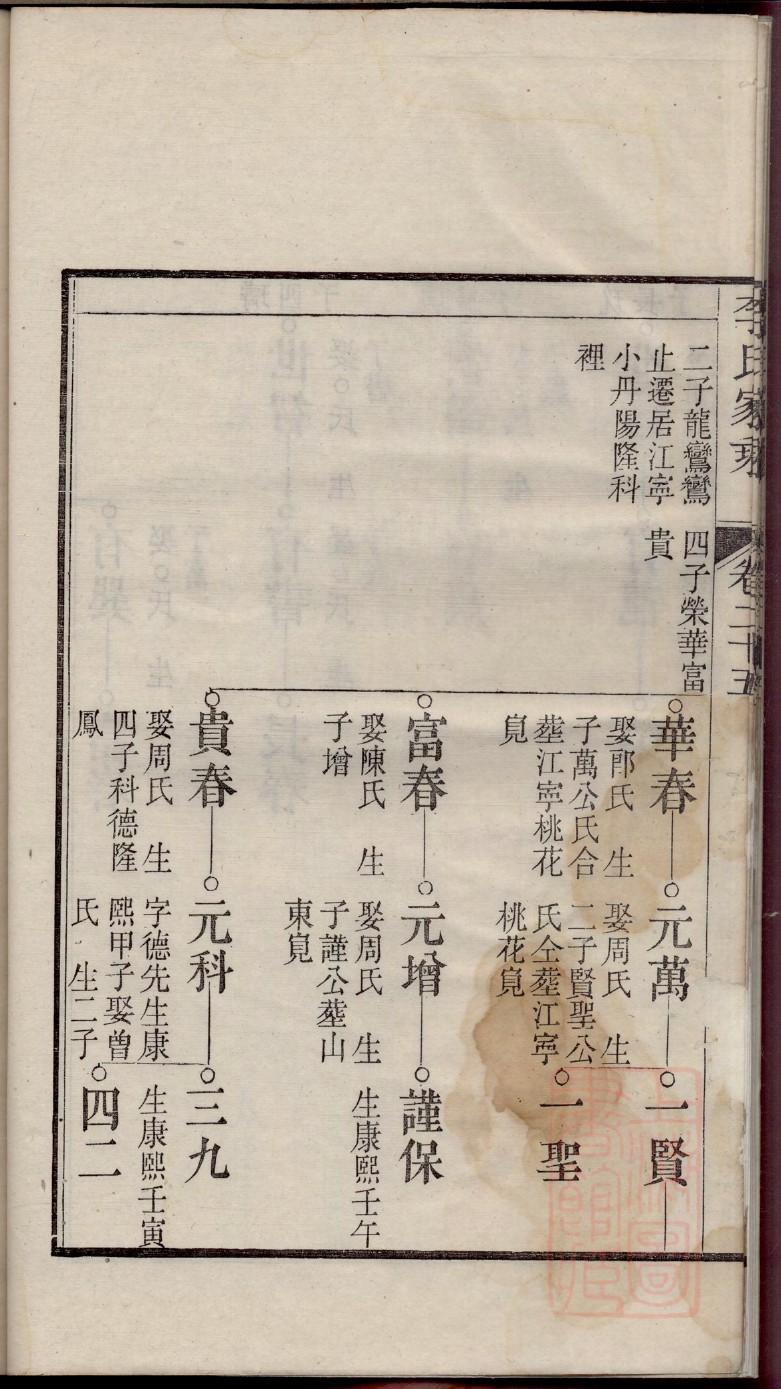 李氏家乘
卷二十五
二子龍鸞鸞
止遷居江寧
小丹陽隆科
裡
四子榮華富
貴
華春
娶郎氏 生
子萬公氏合
塟江寧桃花
䆫
元萬
娶周氏 生
二子賢聖公
氏仝塟江寧
桃花䆫
一賢
一聖
富春
娶陳氏 生
子增
元增
娶周氏 生
子謹公塟山
東䆫
謹保
生康熙壬午
貴春
娶周氏 生
四子科德隆
鳳
元科
字德先生康
熙甲子娶曾
氏 生二子
三九
生康熙壬寅
四二
上海圖
書館藏